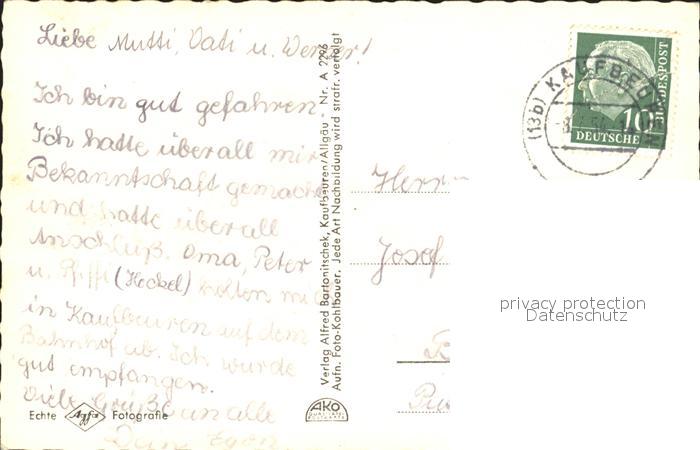 Liebe Mutti, Vati u. Werner!
Ich bin gut gefahren.
Ich hatte überall mir
Bekanntschaft gemacht
und hatte überall
Anschluß. Oma, Peter
u. Pfiffi (Hockel) holten mich
in Kaufbeuren auf dem
Bahnhof ab. Ich wurde
gut empfangen.
Viele Grüße an alle
Egon
Echte Agfa Fotografie
Verlag Alfred Bartonitschek, Kaufbeuren/Allgäu - Nr. A 2296
Aufn. Foto-Kohlbauer. Jede Art Nachbildung wird strafr. verfolgt
AKO
(13b) KAUFBEUREN
10
DEUTSCHE
BUNDESPOST
Herrn
Josef
privacy protection
Datenschutz